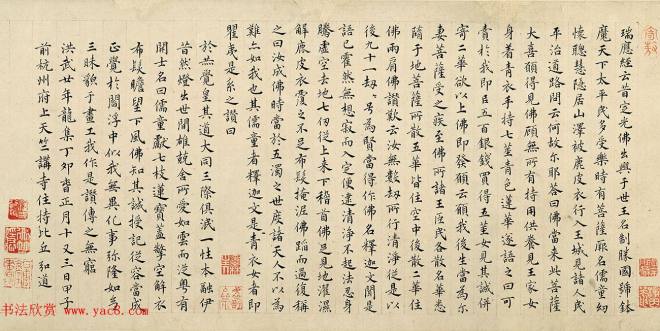 瑞應經云昔定光佛出興于世王名制勝國號鉢
魔天下太平民多受樂時有菩薩厥名儒童幼
懷聰慧隱居山澤被鹿皮衣行入王城見諸人民
平治道路問云何故尔耶答曰佛當來此菩薩
大喜願得見佛顧無所有持用供養見王家女
身着青衣手持七莖青色蓮華遂語之曰可
賣於我即以五百銀錢買得五莖女見其誠併
寄二華欲以上佛即發願云願我後生當為尔
妻菩薩受之疾至佛所諸王臣民各散名華悉
隨于地菩薩所散五華皆住空中後散二華住
佛兩肩佛讚歎云汝無數劫所行清淨從是以
後九十一劫号為賢當得作佛名釋迦文聞是
語已霍然無想寂而入定便逮清淨不起法忍身
騰虛空去地七仞從上来下稽首佛足見地濯濕
解鹿皮衣覆之不足布髮掩泥佛蹈而過復稱
之曰汝成佛時當於五濁之世度諸天人不以為
難亦如我也其儒童者釋迦文是青衣女者即
瞿夷是系之讚曰
於共覺皇其道大同三際俱泯一性本融伊
昔然燈出世間雄競舍所愛如雲而泛粤有
開士名曰儒童獻七枝蓮寶蓋擎空解衣
布髮瞻望下風佛知其誠授記從容當成
正覺於閻浮中似我無異化事弥隆如是
三昧貌于畫工我作是讚傳之無窮
洪武廿年龍集丁卯春正月十又三日甲子
前杭州府上天竺講寺住持比丘弘道
书法欣赏
www.yac8.com